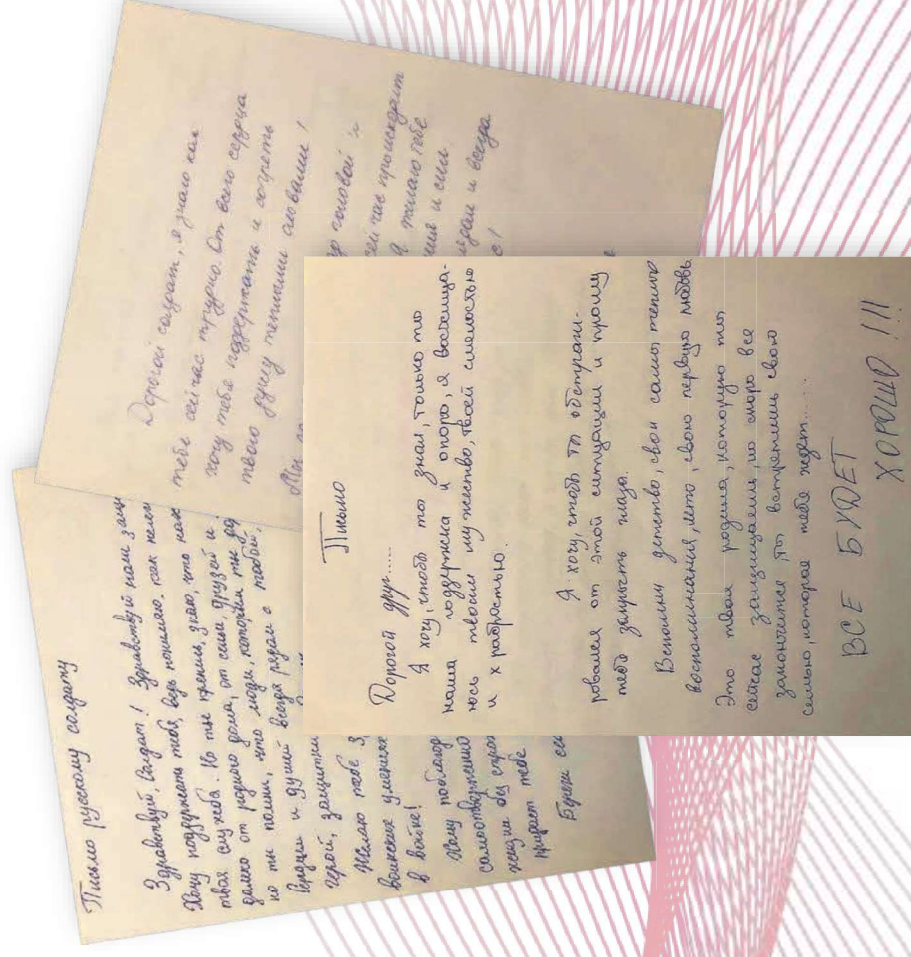 Письмо русскому солдату
Здравствуй, Солдат! Здравствуй наш
Хочу поддержать тебя, ведь понимаю, как
твоя служба. Но ты крепись, знаю, что как
далеко от родного дома, от семьи друзей и
но ты помни, что люди, которым ты
сердцем и душой всегда рядом с тобой.
герой,
Желаю тебе
воинских
в войне!
Хочу
без
придает тебе
Береги
Дорогой солдат, я знаю как
тебе сейчас трудно. От всего сердца
хочу тебя поддержать и согреть
твою душу теплыми словами!
Мы
головой и
сейчас происходит
Я желаю тебе
и сил
рядом и всегда
Письмо
Дорогой друг......
Я хочу, чтобы ты знал, только ты
наша поддержка и опора, я восхища-
юсь твоим мужество, твоей смелостью
и храбростью.
Я хочу, чтоб ты абстраги-
ровался от этой ситуации и прошу
тебя закрыть глаза.
Вспомни детство, свои самые теплые
воспоминания, лето, свою первую любовь.
Это твоя родина, которую ты
сейчас защищаешь, но скоро все
закончится, ты встретишь свою
семью, которая тебя ждет......
ВСЕ БУДЕТ
ХОРОШО !!!